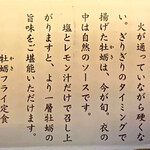 火が通っていながら硬くな
い。ぎりぎりのタイミングで
揚げた牡蛎は、今が旬。衣の
中は自然のソースです。
塩とレモン汁だけで召し上
がりますと、より一層牡蛎の
旨味をご堪能いただけます。
牡蛎フライ定食